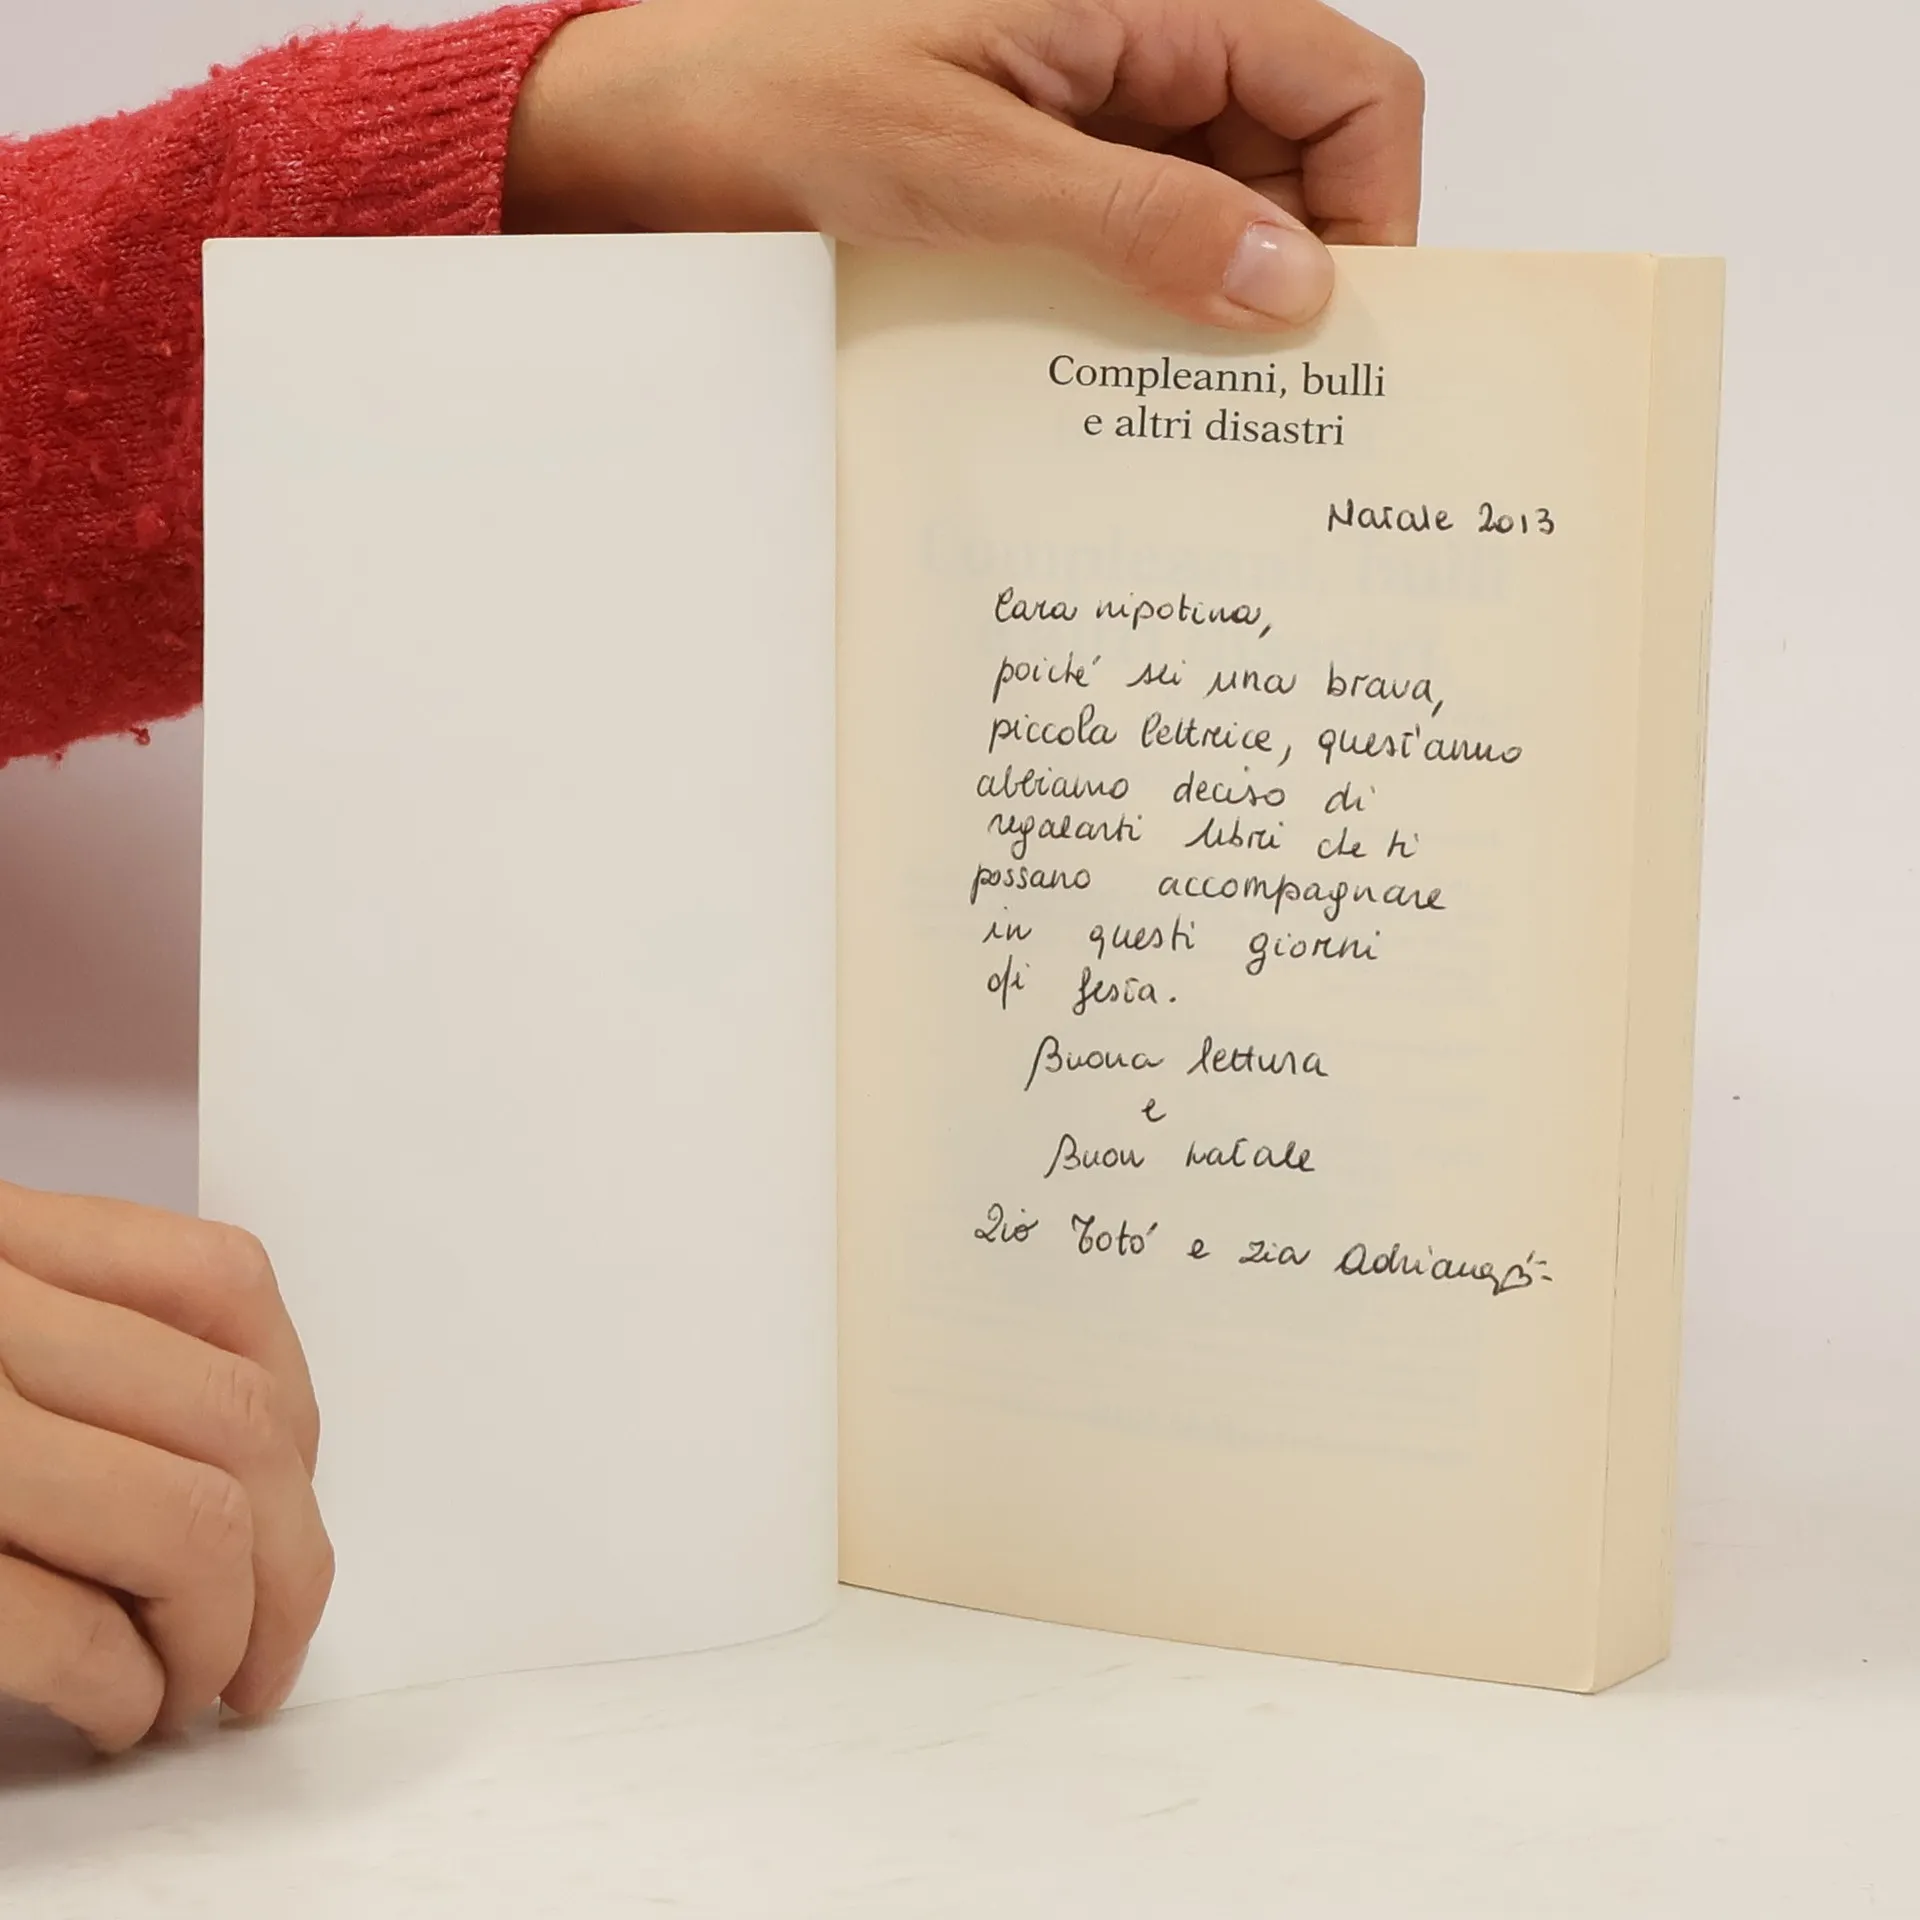 Compleanni, bulli
e altri disastri
Natale 2013
Cara nipotina,
poiché sei una brava,
piccola lettrice, quest'anno
abbiamo deciso di
regalarti libri che ti
possano accompagnare
in questi giorni
di festa.
Buona lettura
e
Buon natale
Zio Totò e zia Adriana